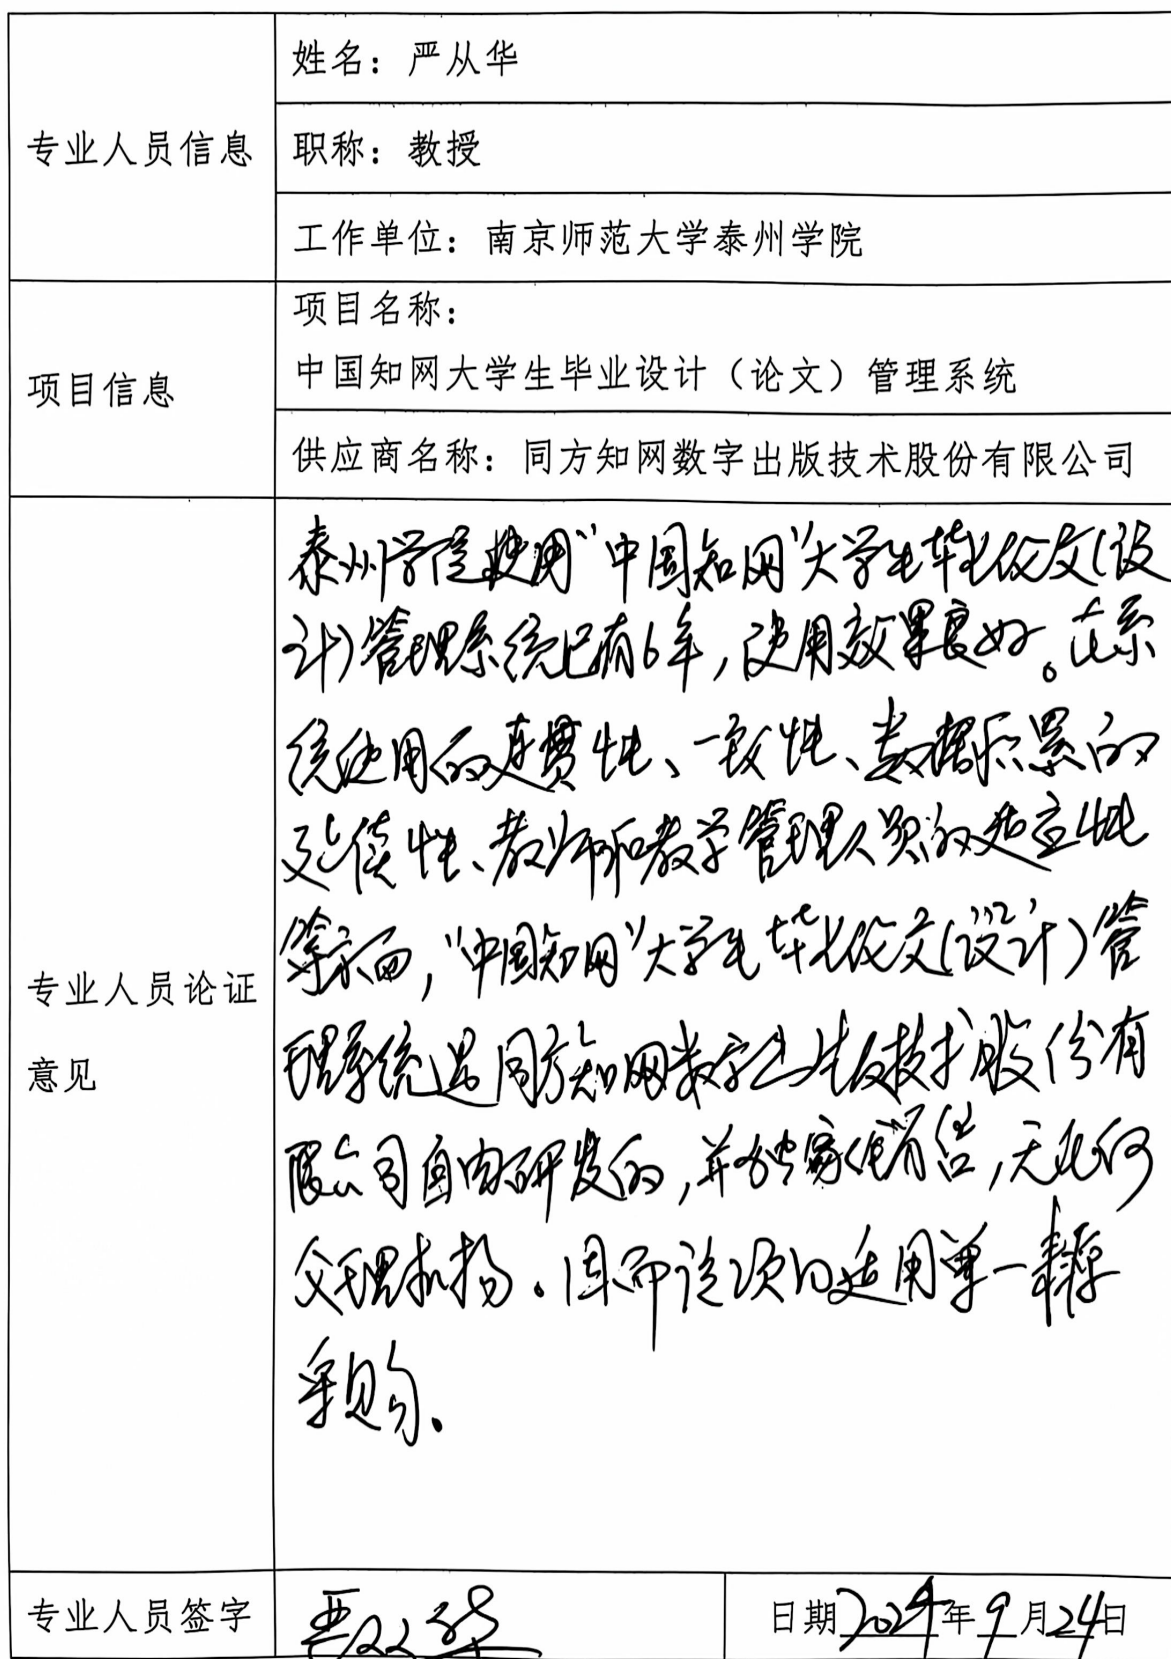 姓名：严从华
专业人员信息
职称：教授
工作单位：南京师范大学泰州学院
项目名称：
中国知网大学生毕业设计（论文）管理系统
项目信息
供应商名称：同方知网数字出版技术股份有限公司
泰州学院使用“中国知网”大学生毕业论文（设
计）管理系统已有6年，使用效果良好。在系
统使用的连贯性、一致性、数据积累的
延续性、教师和教学管理人员的适应性
等方面，“中国知网”大学生毕业论文（设计）管
理系统是同方知网数字出版技术股份有
限公司自主研发的，并独家销售，无任何
代理机构。因而该项目适用单一来源
采购。
专业人员论证
意见
专业人员签字
严从华
日期2024年9月24日